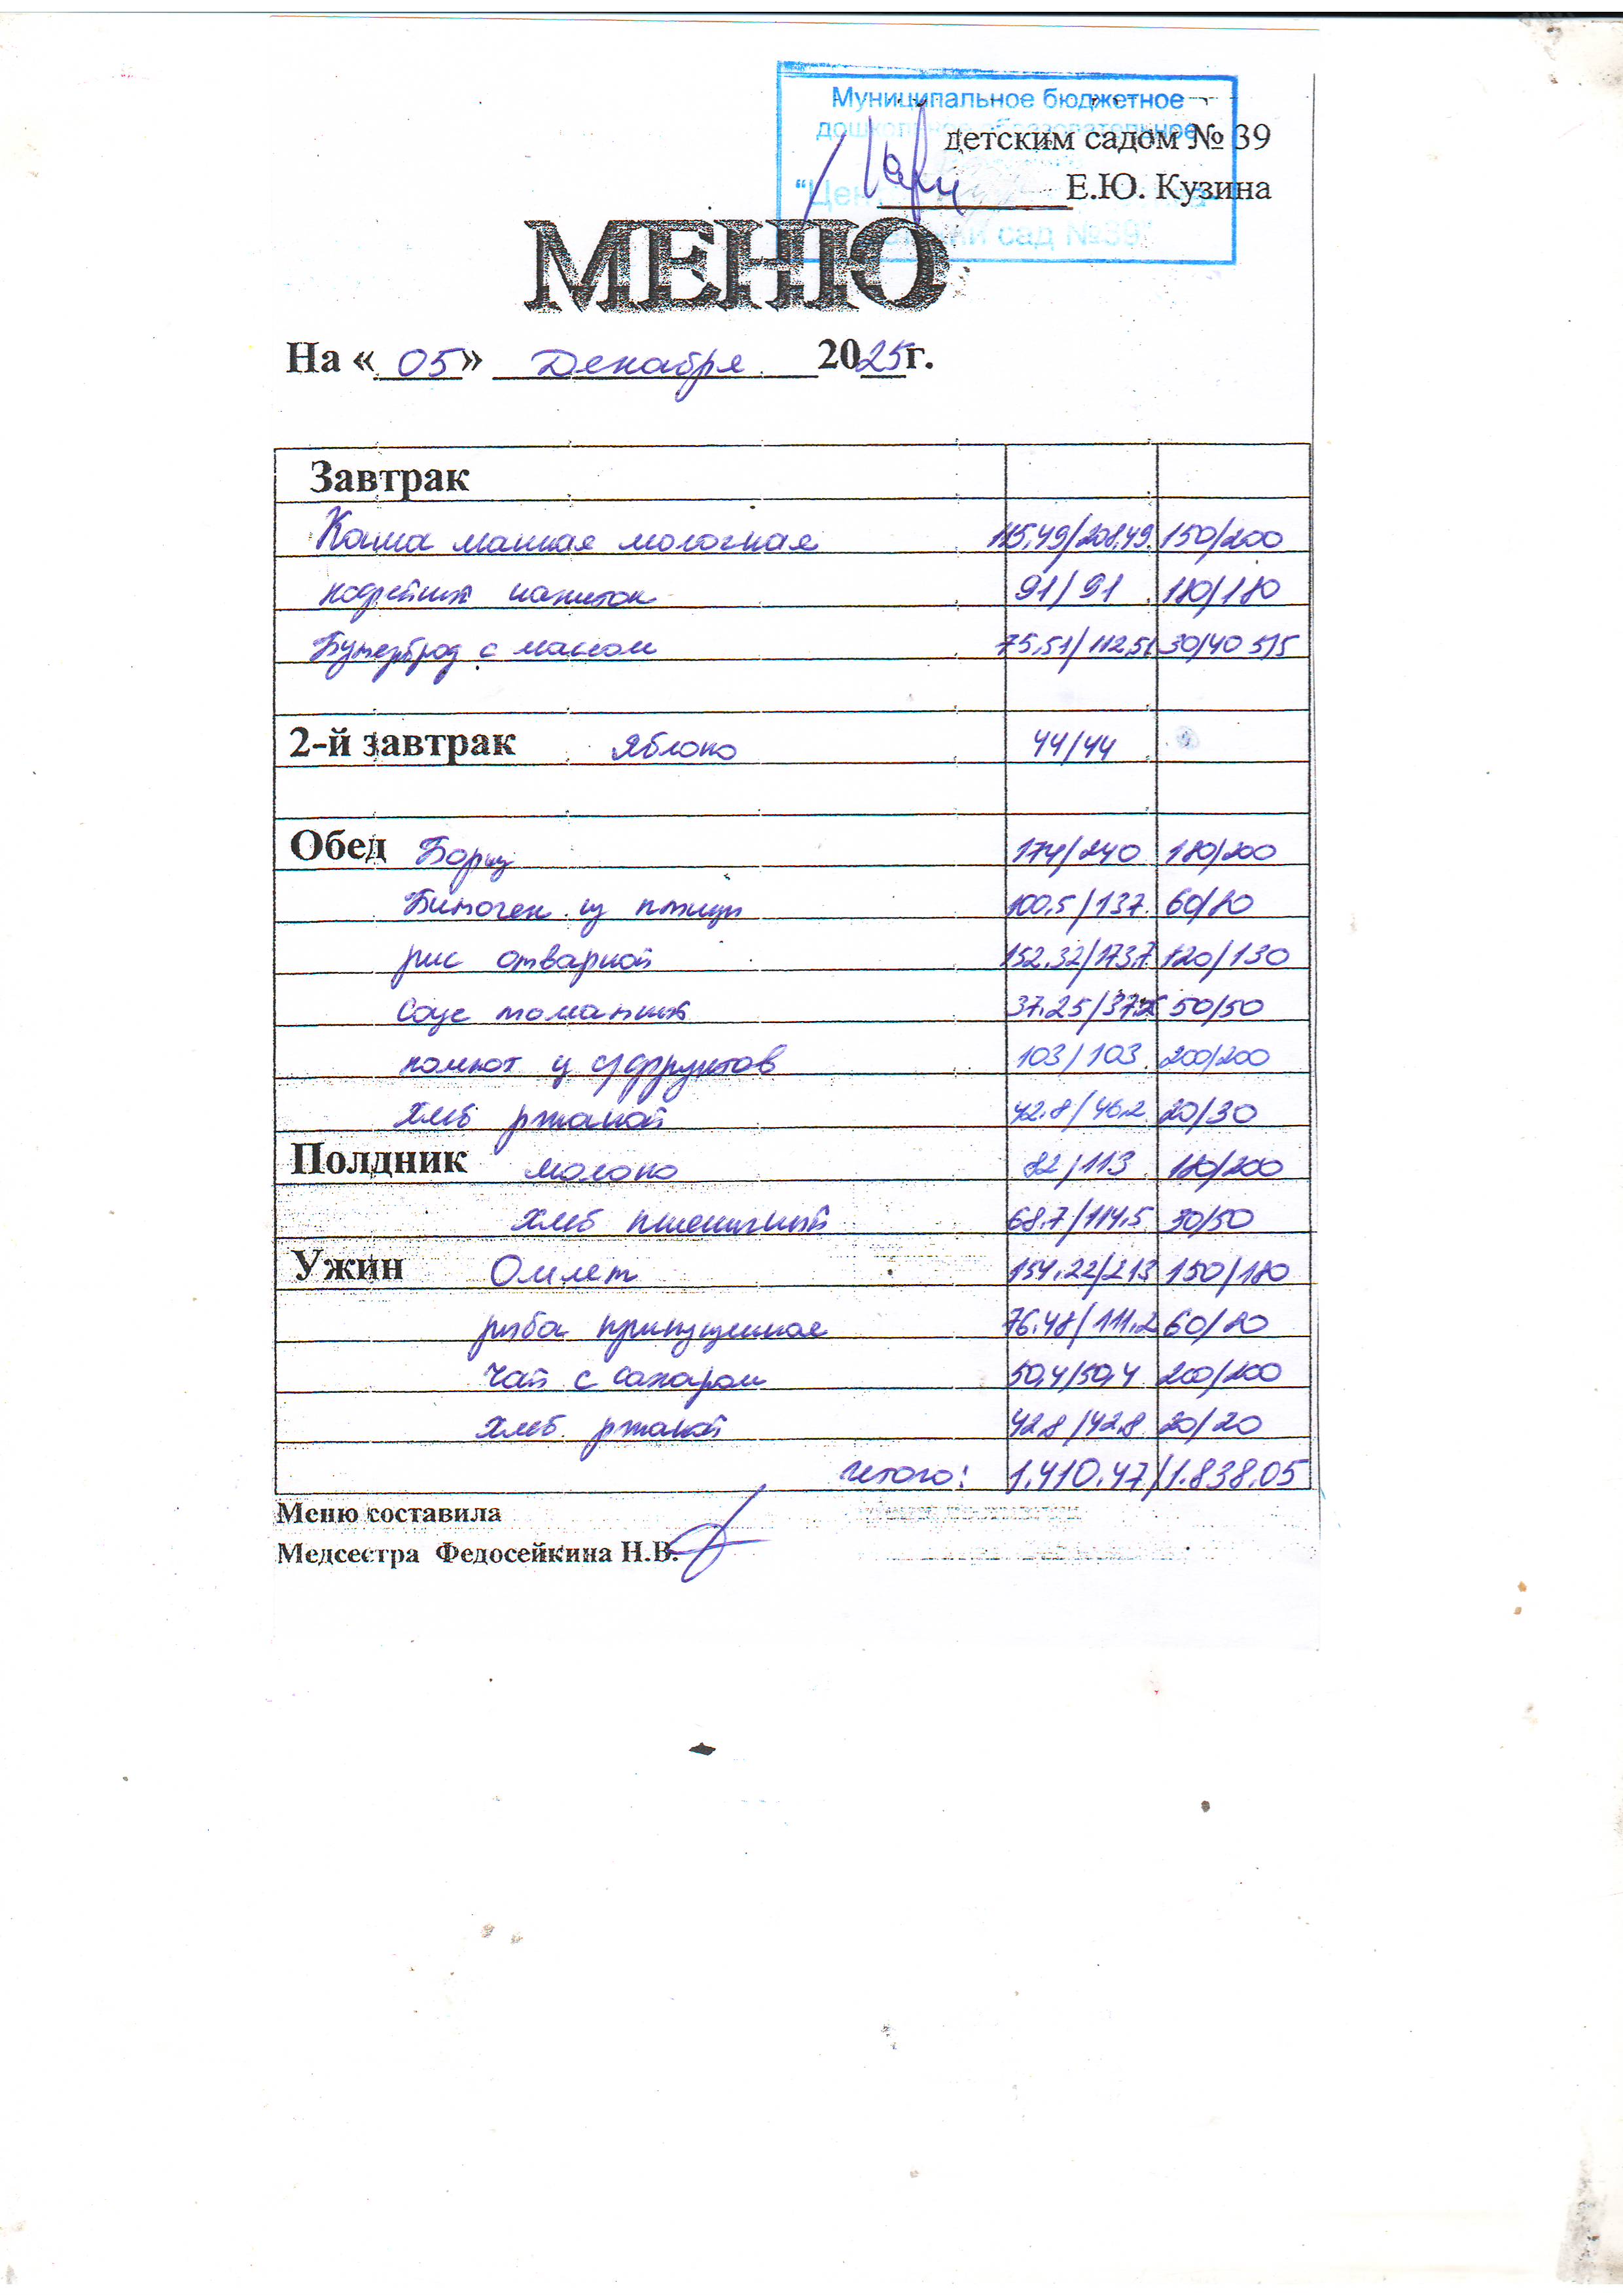 Муниципальное бюджетное
детским садом № 39
Е.Ю. Кузина
сад №39"
МЕНЮ
На « 05 » Декабря 2025г.
Завтрак
Каша манная молочная 115,49/208,49 150/200
кофейный напиток 91/91 180/180
Бутерброд с маслом 75,51/112,51 30/40 5/5
2-й завтрак Яблоко 44/44
Обед Борщ 174/240 180/200
Биточек из птицы 100,5/137 60/80
рис отварной 152,32/173,7 120/130
Соус томатный 37,25/37,25 50/50
компот из с/фруктов 103/103 200/200
хлеб ржаной 42.8/46.2 20/30
Полдник молоко 82/113 180/200
хлеб пшеничный 68.7/114.5 30/50
Ужин Омлет 154.22/213 150/180
рыба припущенная 76.48/111.2 60/80
Чай с сахаром 50,4/50,4 200/200
хлеб ржаной 42.8/42.8 20/20
итого: 1.410.47/1.838.05
Меню составила
Медсестра Федосейкина Н.В.